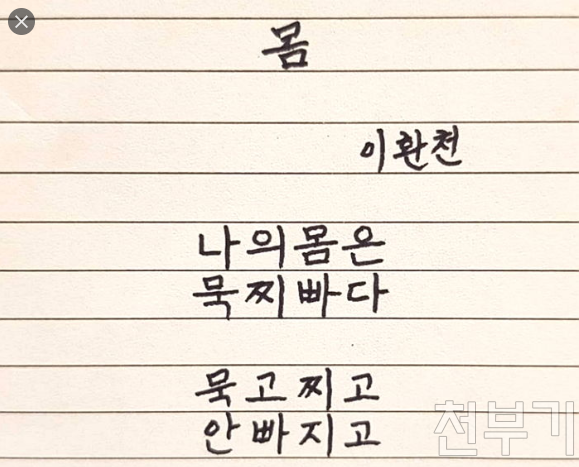 몸
이환천
나의몸은
묵찌빠다
묵고찌고
안빠지고
천부기